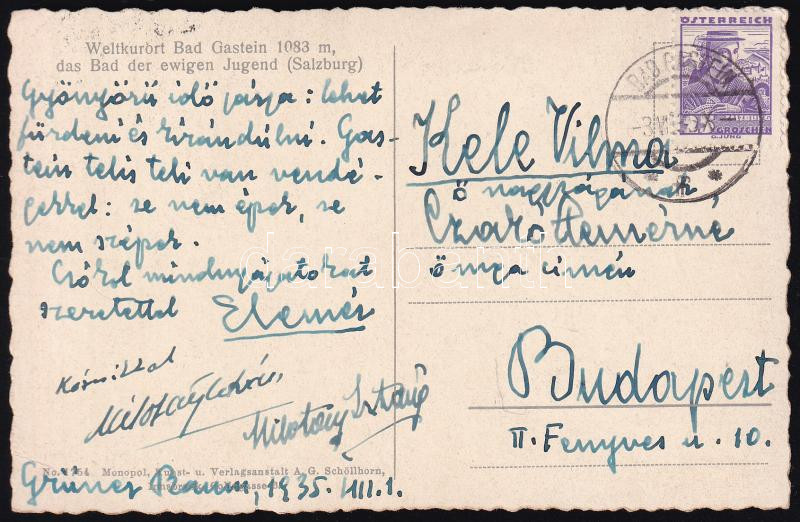 Weltkurort Bad Gastein 1083 m,
das Bad der ewigen Jugend (Salzburg)
Gyönyörü idő járja: lehet
fürdeni és kirándulni. Gas-
tein telis teli van vendé-
gekkel: se nem épek, se
nem szépek.
Csókol mindnyájatokat
szeretettel Elemér
Milotay István
No. 1754 Monopol, Kunst- u. Verlagsanstalt A. G. Schöllhorn,
Grüner Baum, 1935. VIII. 1.
ÖSTERREICH
SALZBURG
GROSCHEN
G. JUNG
BAD GASTEIN
Kele Vilma
ő nagyságának,
Czakó Elemérné
ő mga címén
Budapest
II. Fenyves u. 10.
darabanth